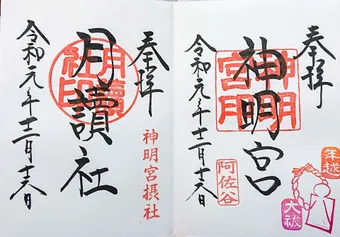 奉拝
神明宮
神明宮
阿佐谷
令和元年十二月十六日
年越
大祓
奉拝
神明宮摂社
月讀社
月讀社印
令和元年十二月十六日